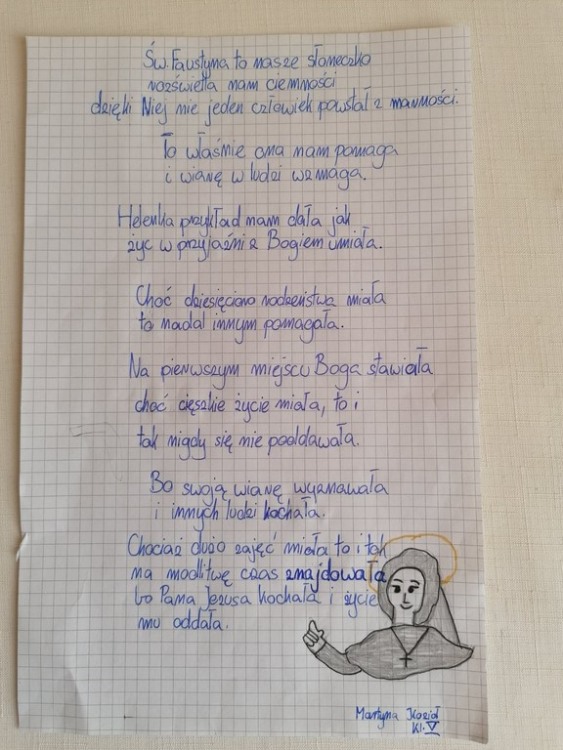 Św. Faustyna to nasze słoneczko
rozświetla nam ciemności
dzięki Niej nie jeden człowiek powstał z marności.
To właśnie ona nam pomaga
i wiarę w ludzi wzmaga.
Helenka przykład nam dała jak
żyć w przyjaźni z Bogiem umiała.
Choć dziesięcioro rodzeństwa miała
to nadal innym pomagała.
Na pierwszym miejscu Boga stawiała
choć cięszkie życie miała, to i
tak nigdy się nie poddawała.
Bo swoją wiarę wyznawała
i innych ludzi kochała.
Chociaż dużo zajęć miała to i tak
na modlitwę czas znajdowała
bo Pana Jezusa kochała i życie
mu oddała.
Martyna Kozioł
Kl. V